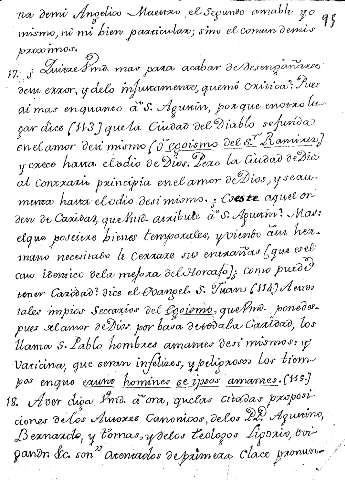 na demi Angelico Maestro, el Segundo amable yo
mismo, ni mi bien particular; sino el comun demis
proximos.
98
17. ¿ Quiere Vmd. mas para acabar de desengañarse
de su error, y delo injustamente, quemó critica? Pues
ai mas en quanto á S. Agustin, porque en otro lu-
gar dice (113) que la Ciudad del Diablo se funda
en el amor de si mismo (ô egoismo del Sr. Ramirez)
y crece hasta el odio de Dios. Pero la Ciudad de Dios
al Contrario principia en el amor de Dios, y se au-
menta hasta el odio de si mismo. ¿ Coeste aquel or-
den de Caridad, que Vmd. atribuie á S. Agustin? Mas:
el que poseiere bienes temporales, y viendo á su her-
mano necesitado le Cerrare sus entrañas (que es el
caso identico de la mesera del Horafo); como puede
tener Caridad? dice el Evangelista S. Juan (114) A estos
tales impios Sectarios del Egoismo, que Vmd. pone des-
pues del amor de Dios por basa de toda la Caridad, los
llama S. Pablo hombres amantes de si mismos: y
Vaticina, que seran infelizes, y peligrosos los tiem-
pos en que erunt homines se ipsos amantes. (115.)
18. A ver diga Vmd. aora, que las citadas proposi-
ciones de los Autores Canonicos, de los PP. Agustino,
Bernardo, y tomas, y de los teologos Ligorio, Wi-
gandn &c. son Atentados de primera Clace pronun-